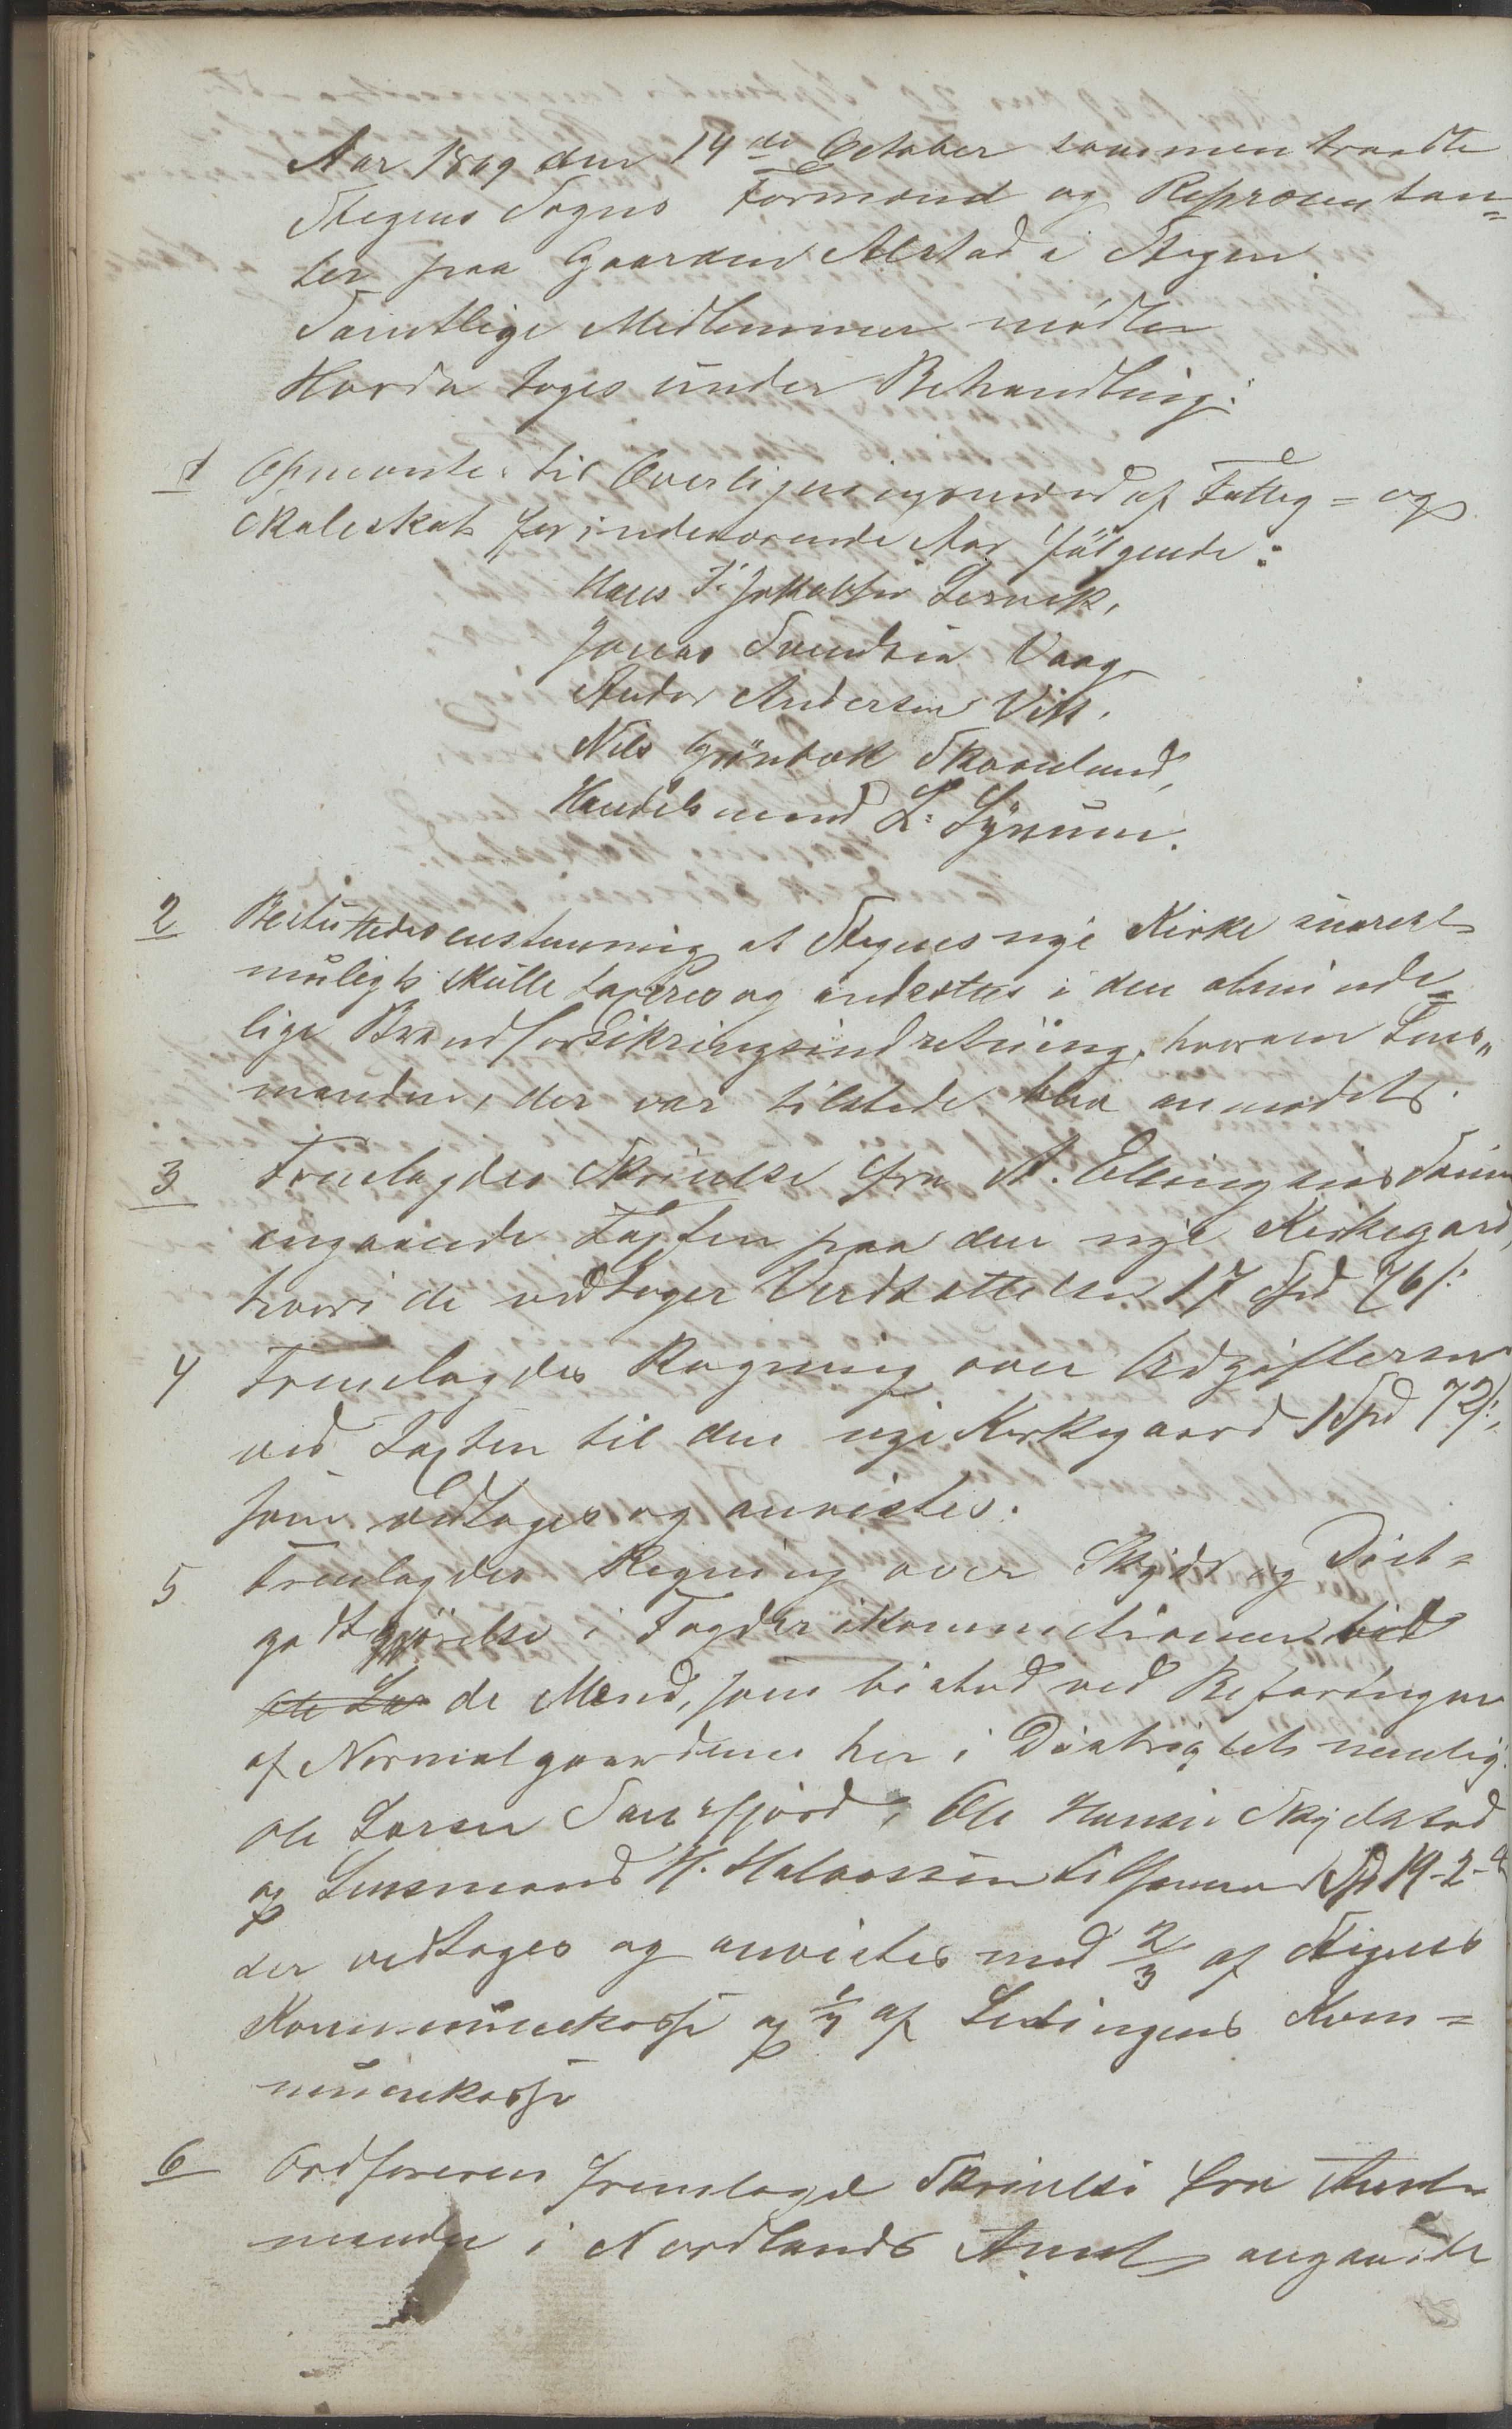 Aar 1869 den 14de October sammentraadte
Stegens Sogns Formænd og Repræsentan=
ter paa Gaarden Alstad i Stegen
Samtlige Medlemmer mødte
Hvorda toges under Behandling:
1 Opnævnte til Overligningsmænd af Fattig= og
Skoleskat for indeværende Aar følgende:
Hans J. Jakobsen Lervik,
Jonas Svendsen Vaag
Andor Andersen Vik.
Nils Grönbæk Skovelund,
Handelsmand L: Lÿnum.
2 Besluttedes enstemmig at Stegens nye Kirke snarest
muligt skulle taxeres og indsættes i den alminde=
lige Brandforsikringsindretning, hvorom Lens„
manden, der var tilstede blev anmodet.
3 Fremlagdes Skrivelse fra A. Ellingsen Sain
angaaende Taxten paa den nye Kirkegaard,
hvori de vedtager Verdsættelsen 17 Spd 76 s:
4 Fremlagdes Regning over Udgifterne
ved Taxten til den nye Kirkegaard 1 Spd 72 s:,
som vedtoges og anvistes.
5 Fremlagdes Regning over Skyds og Diæt=
godtgjørelse i Fogderikommissionen ved
de Mænd, som bistod ved Befaringen
af Normalgaardene her i Distriktet nemlig:
Ole Larsen Sansfjord, Ole Hansen Skjelstad
og Lensmand H. Halvorsen tilsammen Spd 19-2-4
der vedtoges og anvistes med 2/3 af Stegens
Kommunekasse og 1/3 af Ledingens Kom=
munekasse
6 Ordføreren fremlagde Skrivelse fra Amt
manden i Nordlands Amt angaaende